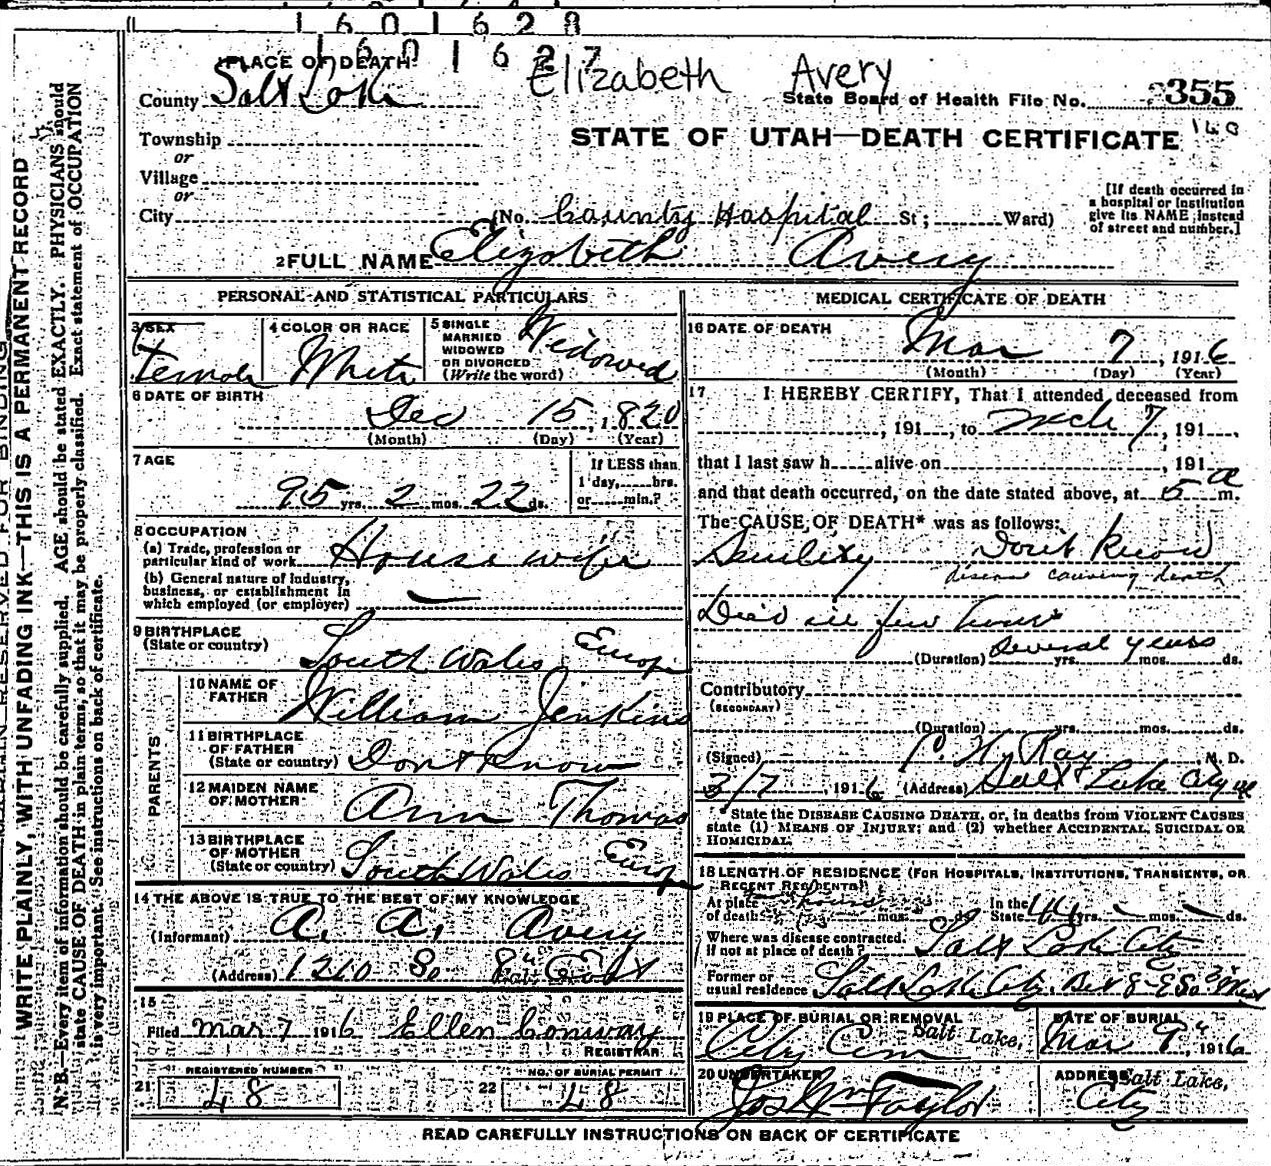 1601628
1601627
PLACE OF DEATH
Elizabeth Avery
County Salt Lake
State Board of Health File No. 355
Township
STATE OF UTAH—DEATH CERTIFICATE
or
Village
or
City (No. County Hospital St; Ward)
[If death occurred in
a hospital or institution
give its NAME instead
of street and number.]
2 FULL NAME Elizabeth Avery
PERSONAL AND STATISTICAL PARTICULARS
3 SEX
Female
4 COLOR OR RACE
White
5 SINGLE
MARRIED
WIDOWED
OR DIVORCED
(Write the word)
Widowed
6 DATE OF BIRTH
Dec 15, 1820
(Month) (Day) (Year)
7 AGE
95 yrs. 2 mos. 22 ds.
If LESS than
1 day, hrs.
or min.?
8 OCCUPATION
(a) Trade, profession or
particular kind of work House wife
(b) General nature of industry,
business, or establishment in
which employed (or employer)
9 BIRTHPLACE
(State or country) South Wales Europe
PARENTS
10 NAME OF
FATHER William Jenkins
11 BIRTHPLACE
OF FATHER
(State or country) Dont Know
12 MAIDEN NAME
OF MOTHER Ann Thomas
13 BIRTHPLACE
OF MOTHER
(State or country) South Wales Europe
14 THE ABOVE IS TRUE TO THE BEST OF MY KNOWLEDGE
(Informant) A. A. Avery
(Address) 1210 So 8th East
15
Filed Mar 7 1916 Ellen Conway
REGISTRAR
21 REGISTERED NUMBER
48
22 NO. OF BURIAL PERMIT
48
MEDICAL CERTIFICATE OF DEATH
16 DATE OF DEATH
Mar 7, 1916
(Month) (Day) (Year)
17 I HEREBY CERTIFY, That I attended deceased from
, 191 , to Mch 7, 191 ,
that I last saw h alive on , 191
and that death occurred, on the date stated above, at 5 a m.
The CAUSE OF DEATH* was as follows:
Senility Dont Know
disease causing death
Died in few hours
(Duration) Several years yrs. mos. ds.
Contributory
(SECONDARY)
(Duration) yrs. mos. ds.
(Signed) P. H. Ray, M. D.
3/7, 1916 (Address) Salt Lake City
*State the DISEASE CAUSING DEATH, or, in deaths from VIOLENT CAUSES
state (1) MEANS OF INJURY; and (2) whether ACCIDENTAL, SUICIDAL OR
HOMICIDAL
18 LENGTH OF RESIDENCE (FOR HOSPITALS, INSTITUTIONS, TRANSIENTS, OR
RECENT RESIDENTS)
At place
of death yrs. hours mos. ds. In the
State 44 yrs. mos. ds.
Where was disease contracted,
if not at place of death? Salt Lake City
Former or
usual residence Salt Lake City.
19 PLACE OF BURIAL OR REMOVAL
City Cem Salt Lake,
DATE OF BURIAL
Mar 9", 1916
20 UNDERTAKER
Jos Wm Taylor
ADDRESS
Salt Lake,
City
READ CAREFULLY INSTRUCTIONS ON BACK OF CERTIFICATE
RESERVED FOR BINDING
WRITE PLAINLY, WITH UNFADING INK—THIS IS A PERMANENT RECORD
N. B.—Every item of information should be carefully supplied. AGE should be stated EXACTLY. PHYSICIANS should
state CAUSE OF DEATH in plain terms, so that it may be properly classified. Exact statement of OCCUPATION
is very important. See instructions on back of certificate.